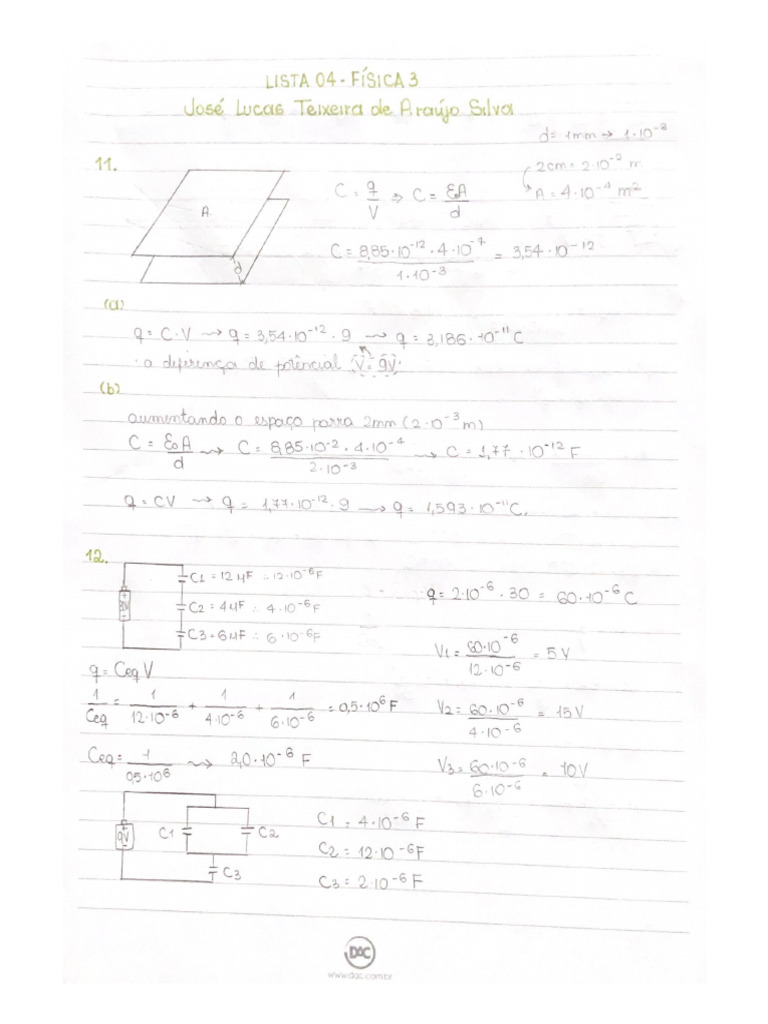 LISTA 04 - FÍSICA 3
José Lucas Teixeira de Araújo Silva
d = 1mm → 1·10⁻³
11.
A
d
C = q/V ⇒ C = ε₀A/d
2cm = 2·10⁻² m
A = 4·10⁻⁴ m²
C = 8,85·10⁻¹² · 4·10⁻⁷ / 1·10⁻³ = 3,54·10⁻¹²
(a)
q = C·V → q = 3,54·10⁻¹² · 9 → q = 3,186·10⁻¹¹ C
· a diferença de potêncial V = 9V.
(b)
aumentando o espaço parra 2mm (2·0⁻³ m)
C = ε₀A/d → C = 8,85·10⁻² · 4·10⁻⁴ / 2·10⁻³ → C = 1,77 · 10⁻¹² F
q = CV → q = 1,77·10⁻¹² · 9 → q = 1,593·10⁻¹¹ C.
12.
30V
C1 = 12µF ∴ 12·10⁻⁶F
C2 = 4µF ∴ 4·10⁻⁶F
C3 = 6µF ∴ 6·10⁻⁶F
q = 2·10⁻⁶ · 30 = 60·10⁻⁶ C
V1 = 60·10⁻⁶ / 12·10⁻⁶ = 5V
q = Ceq V
1/Ceq = 1/12·10⁻⁶ + 1/4·10⁻⁶ + 1/6·10⁻⁶ = 0,5·10⁶ F
V2 = 60·10⁻⁶ / 4·10⁻⁶ = 15V
Ceq = 1/0,5·10⁶ → 2,0·10⁻⁶ F
V3 = 60·10⁻⁶ / 6·10⁻⁶ = 10V
9V
C1
C2
C3
C1 = 4·10⁻⁶ F
C2 = 12·10⁻⁶ F
C3 = 2·10⁻⁶ F
DAC
www.dac.com.br